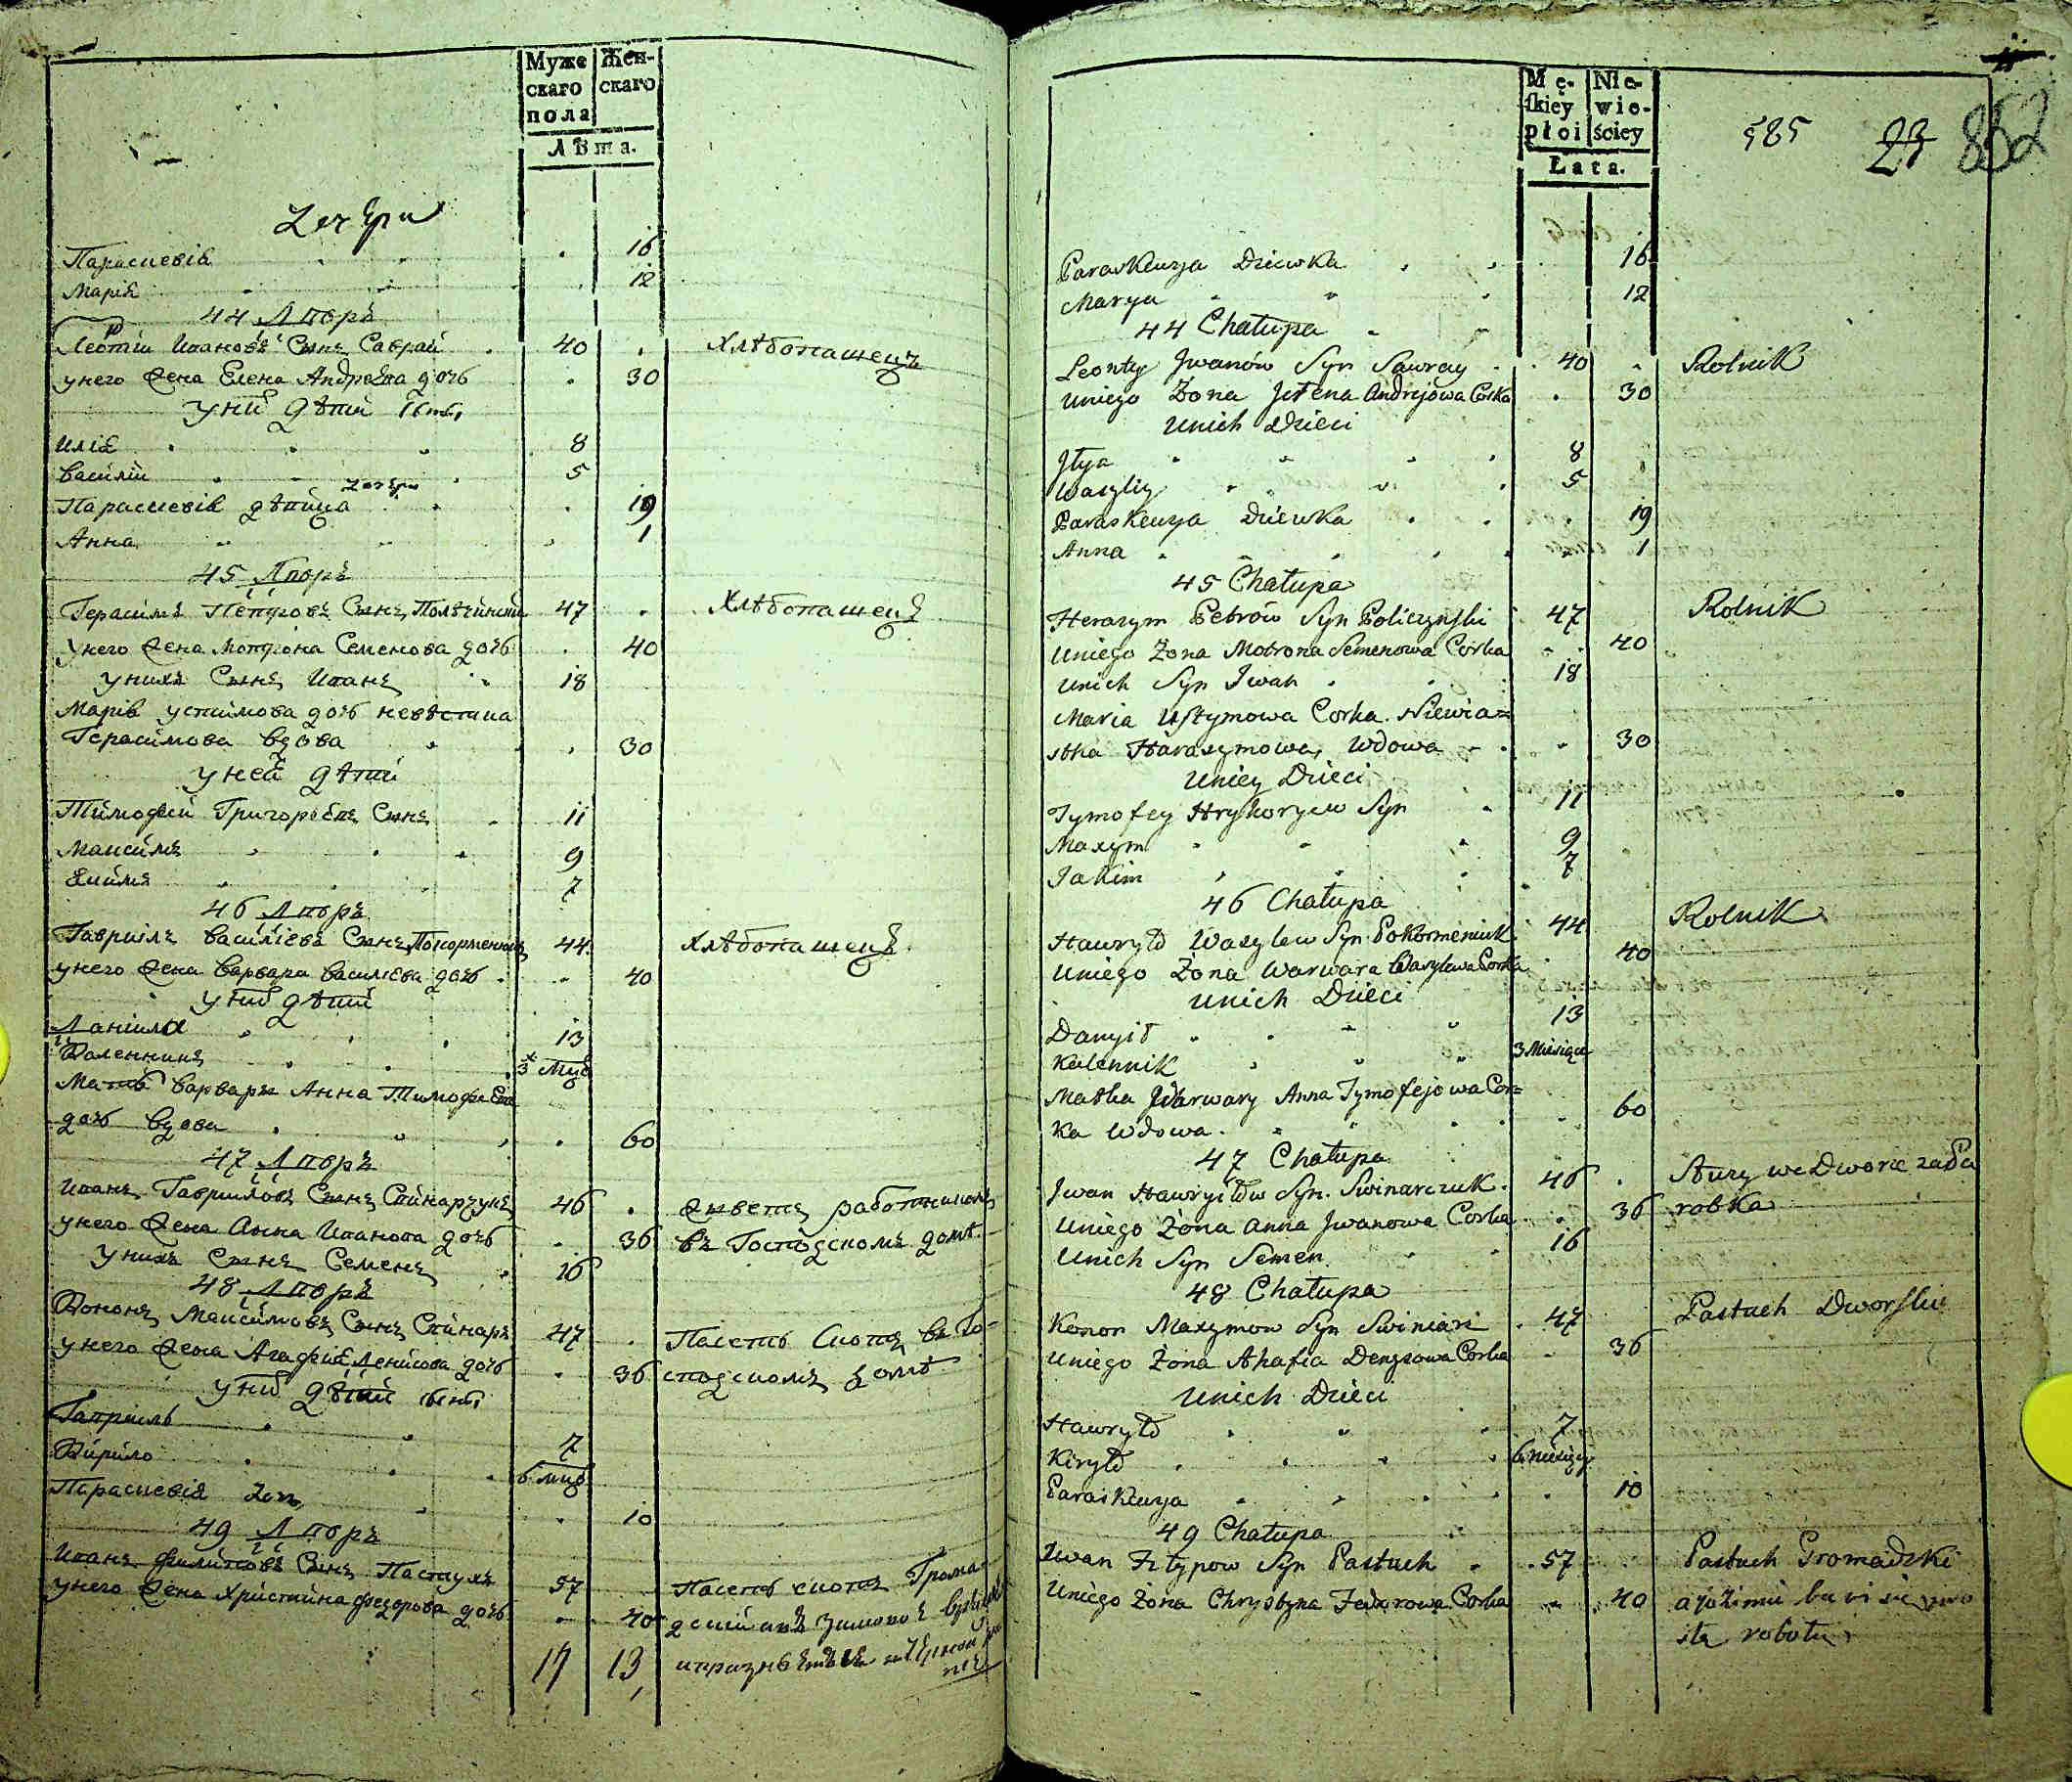 Муже
скаго
пола
Жен-
скаго
Лѣта.
дочери
Параскевія 16
Марія 12
44 Дворъ
Леонтій Ивановъ Сынъ Саврай 40 Хлѣбопашецъ
у него жена Елена Андреева дочь 30
у них дѣти
Илія 8
Василій 5
дочери
Параскевія дѣвица 19
Анна 1
45 Дворъ
Герасимъ Петровъ Сынъ Полѣчинскій 47 Хлѣбопашецъ
у него жена Мотрона Семенова дочь 40
у нихъ Сынъ Иванъ 18
Марія Устимова дочь невѣстка
Герасимова вдова 30
у ней дѣти
Тимофей Григорьевъ Сынъ 11
Максимъ 9
Якимъ 7
46 Дворъ
Гавриилъ Василіевъ Сынъ Покорменюкъ 44 Хлѣбопашецъ
у него жена Варвара Василіева дочь 40
у них дѣти
Даніило 13
Каленникъ 3 мца
Мать Варвары Анна Тимофѣева
дочь вдова 60
47 Дворъ
Иванъ Гавриловъ Сынъ Свинарчукъ 46 живетъ работникомъ
у него жена Анна Иванова дочь 36 въ Господскомъ домѣ
у нихъ Сынъ Семенъ 16
48 Дворъ
Кононъ Максимовъ Сынъ Свинаръ 47 Пасетъ Скотъ въ Го-
у него жена Агафія Денисова дочь 36 сподскомъ домѣ
у них дѣти
Гавріилъ 7
Кирило 6 мцъ
Параскевія дочь 10
49 Дворъ
Иванъ Филиповъ Сынъ Пастухъ 57 Пасетъ скотъ Грома-
у него жена Христина Федорова дочь 40 дскій а въ зимное
17 13
Mę-
skiey
płci
Nie-
wie-
ściey
Łata.
585 23 852
Paraskewya Dziewka 16
Marya 12
44 Chałupa
Leonty Jwanów Syn Sawray 40 Rolnik
Uniego Żona Jełena Andrejowa Corka 30
Unich Dzieci
Jłya 8
Wasyliy 5
Paraskewya Dziewka 19
Anna 1
45 Chałupa
Herasym Petrów Syn Policzynski 47 Rolnik
Uniego Żona Motrona Semenowa Corka 40
Unich Syn Jwan 18
Maria Ustymowa Corka Niewia=
stka Harasymowa, Wdowa 30
Uniey Dzieci
Tymofey Hryhoryew Syn 11
Maxym 9
Jakim 7
46 Chałupa
Hawryło Wasylew Syn Pokormeniuk 44 Rolnik
Uniego Żona Warwara Wasylewa Corka 40
Unich Dzieci
Danyił 13
Kalennik 3 Miesiące
Matka Warwary Anna Tymofejowa Cor=
ka Wdowa 60
47 Chałupa
Jwan Hawryłów Syn Swinarczuk 46 Służy we Dworze za Pa
Uniego Żona Anna Jwanowa Corka 36 robka
Unich Syn Semen 16
48 Chałupa
Konon Maxymow Syn Swiniarz 47 Pastuch Dworski
Uniego Żona Ahafia Denysowa Corka 36
Unich Dzieci
Hawryło 7
Kiryło 6 miesięcy
Paraskewya 10
49 Chałupa
Iwan Filypow Syn Pastuch 57 Pastuch Gromadzki
Uniego Żona Chrystyna Fedorowa Corka 40 a w zimie bawi się
robotą